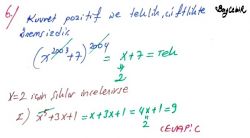 6) Kuvvet pozitif ve teklik, çiftlikte
önemsizdir.
(x²⁰⁰³+7)²⁰⁰⁴ = x+7 = Tek
↓
2
x=2 için şıklar incelenirse
I) x⁵+3x+1 = x+3x+1 = 4x+1 = 9
2
CEVAP: C